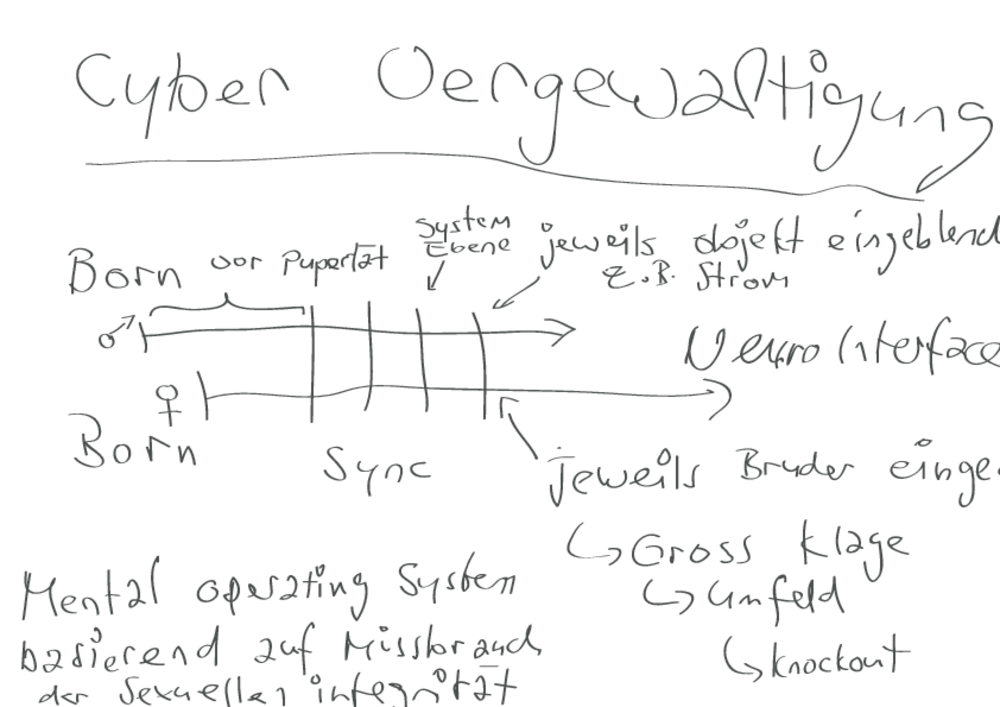 Cyber Vergewaltigung
System
Ebene
jeweils objekt eingeblend
Born vor Pupertät
z.B. Strom
Neuro Interface
Born
Sync
jeweils Bruder einge
Gross Klage
Umfeld
Knockout
Mental operating System
basierend auf Missbrauch
der Sexuellen integrität